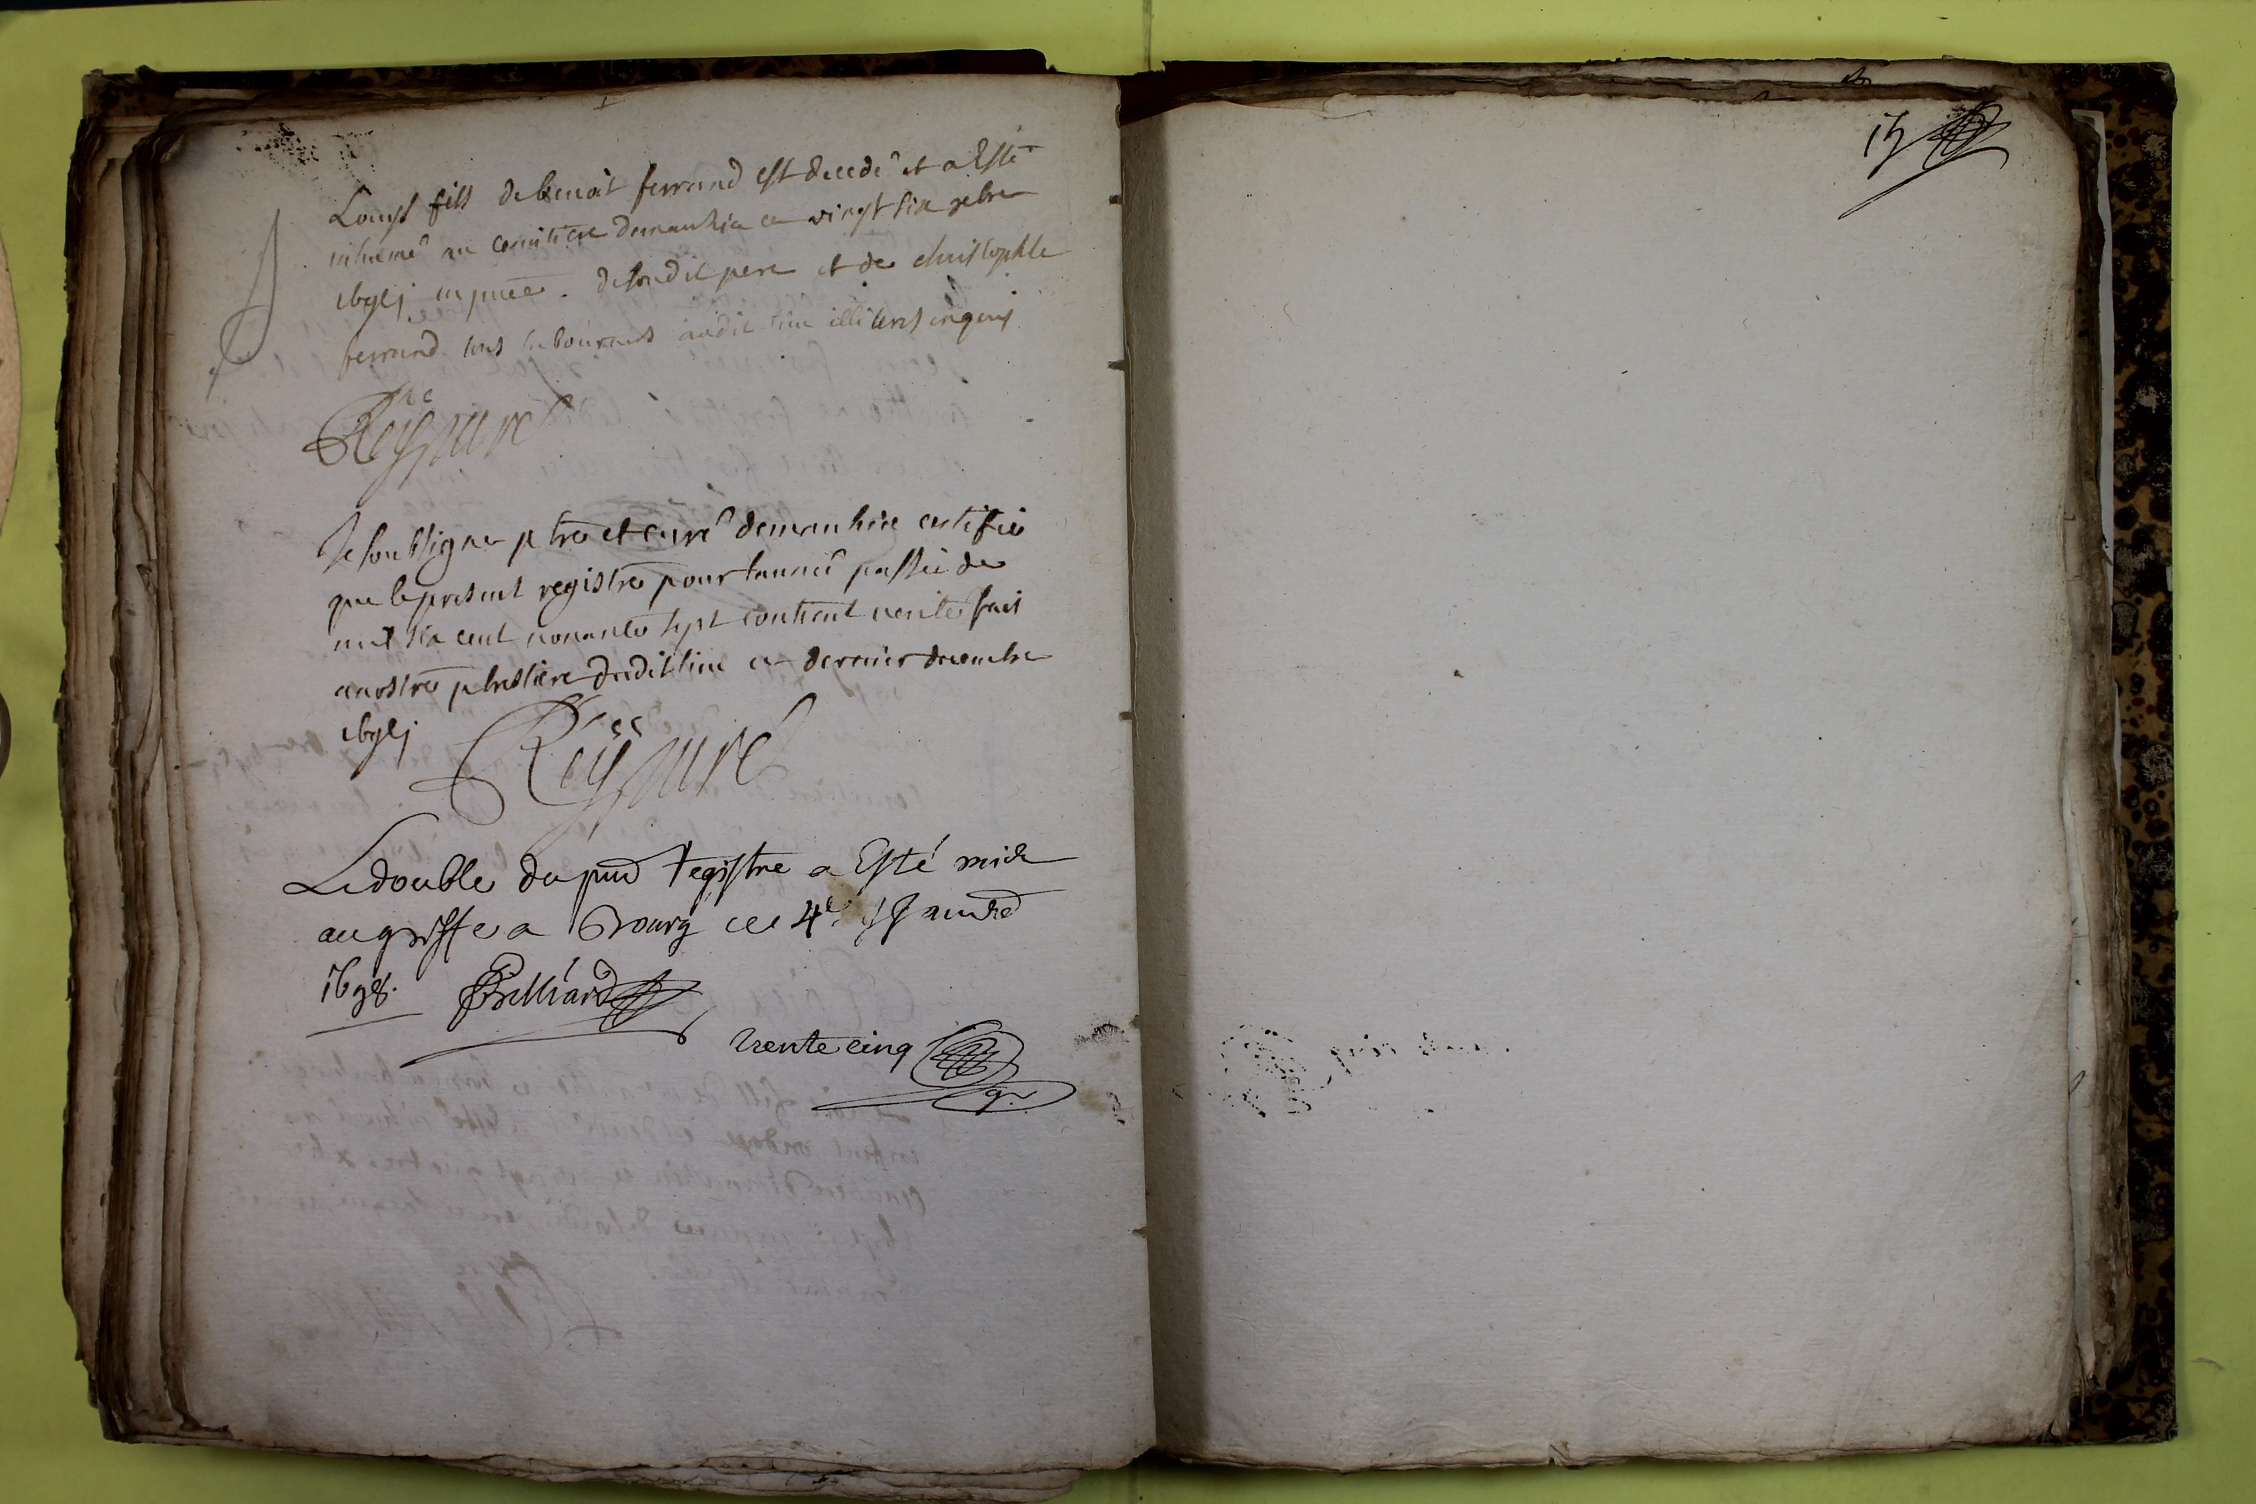 Louys fils de benoit ferrand est decedé et a Esté
inhumé au cemitiere demanhia ce vingt six xbre
en pnce de sondit pere et de christophle
ferrand tous laboureurs audit lieu illiteres enquis
Rey curé
Je soubsigne ptre et curé demanhia certifie
que le present registre pour lannée passée de
mil six cent nonante sept contient verité fait
a nostre pbrestiere dudit lieu ce dernier decembre
Rey curé
Le double du pnt registre a Esté mis
au greffe a Bourg ce 4e Janvier
1698.
trente cinq